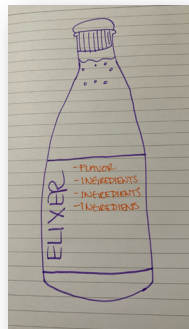 ELIXER
-FLAVOR
-INGREDIENTS
-INGREDIENTS
-INGREDIENS